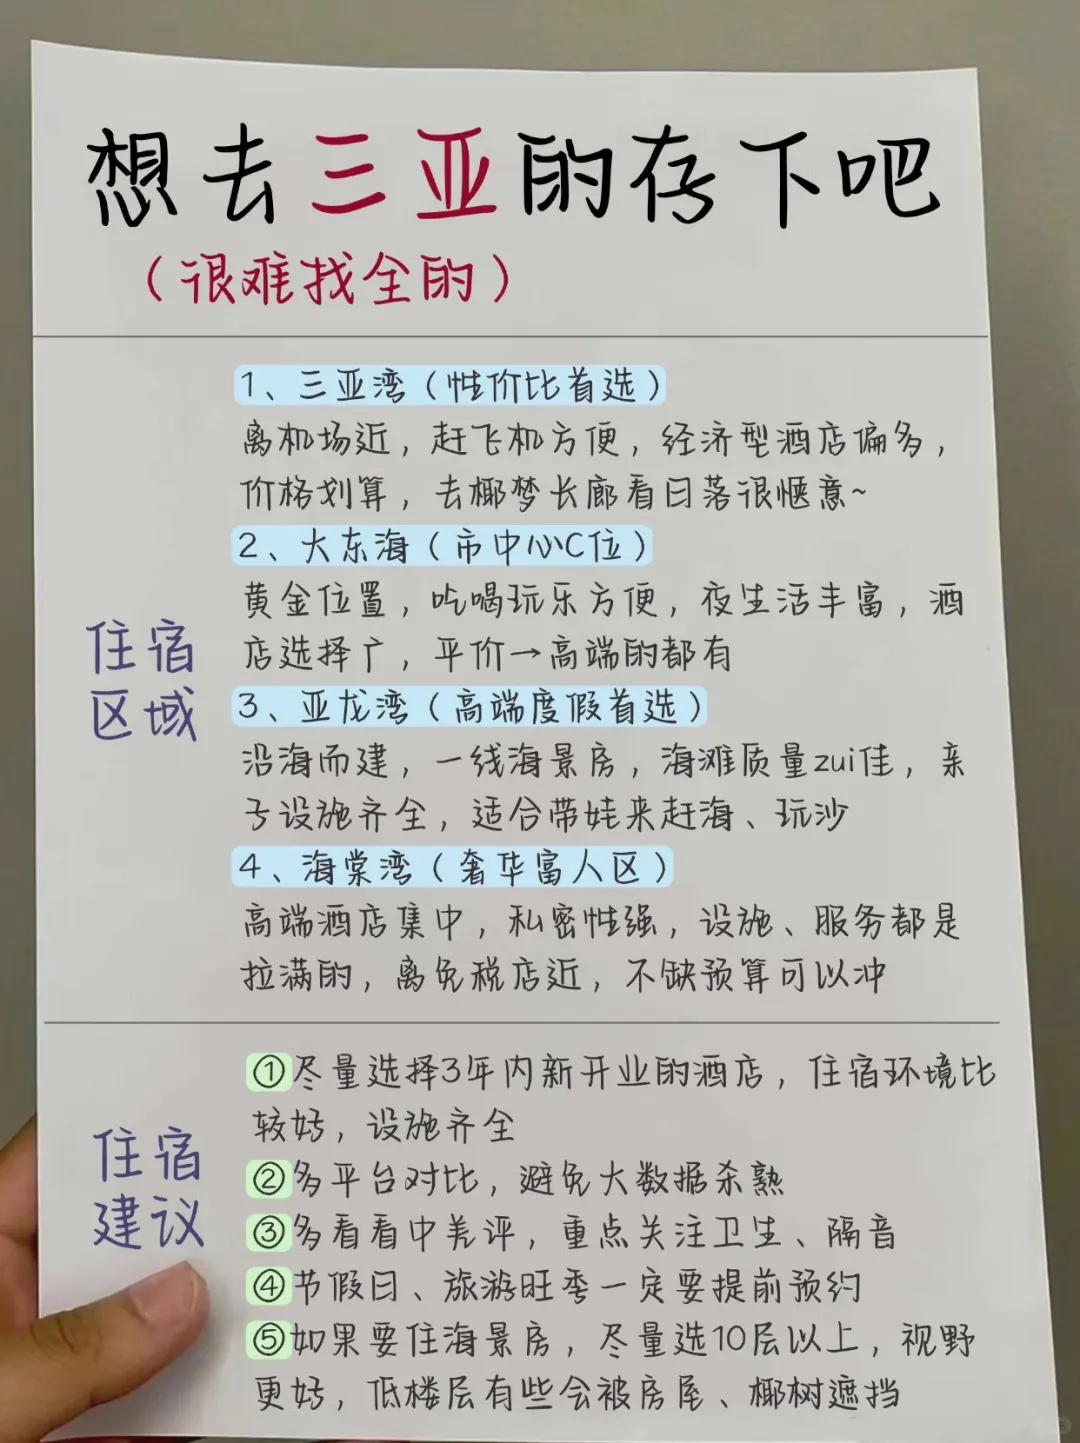 想去三亚的存下吧
（很难找全的）
1、三亚湾（性价比首选）
离机场近，赶飞机方便，经济型酒店偏多，
价格划算，去椰梦长廊看日落很惬意~
2、大东海（市中心C位）
黄金位置，吃喝玩乐方便，夜生活丰富，酒
店选择广，平价→高端的都有
住宿
区域
3、亚龙湾（高端度假首选）
沿海而建，一线海景房，海滩质量zui佳，亲
子设施齐全，适合带娃来赶海、玩沙
4、海棠湾（奢华富人区）
高端酒店集中，私密性强，设施、服务都是
拉满的，离免税店近，不缺预算可以冲
①尽量选择3年内新开业的酒店，住宿环境比
较好，设施齐全
住宿
建议
②多平台对比，避免大数据杀熟
③多看看中差评，重点关注卫生、隔音
④节假日、旅游旺季一定要提前预约
⑤如果要住海景房，尽量选10层以上，视野
更好，低楼层有些会被房屋、椰树遮挡